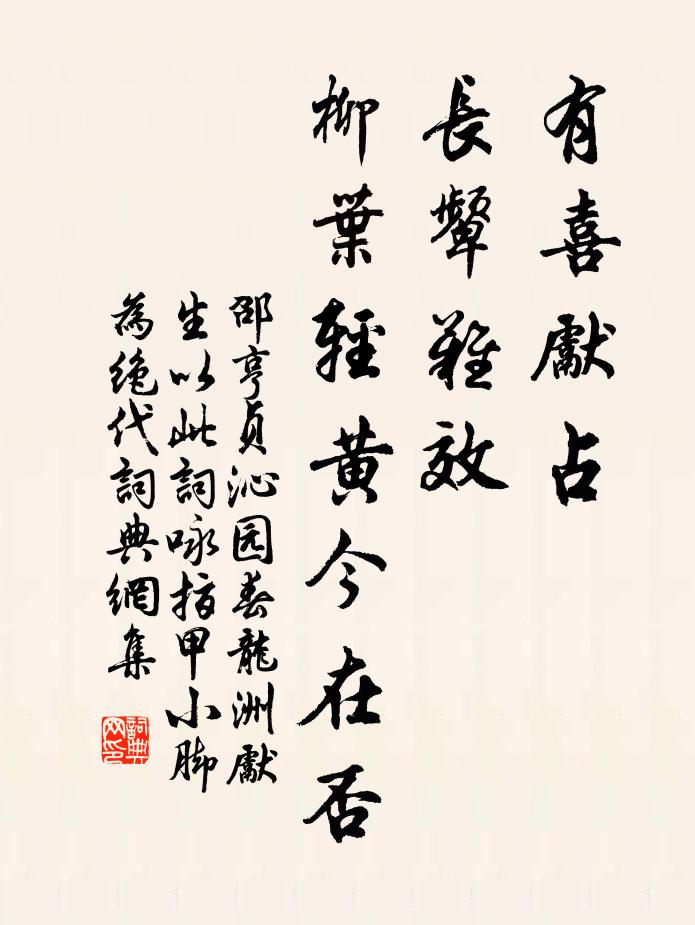 有喜獻占
長顰難效
柳葉輕黃今在否
邵亨貞沁园春龍洲獻
生以此詞咏指甲小脚
為絶代詞典網集
詞典
网印